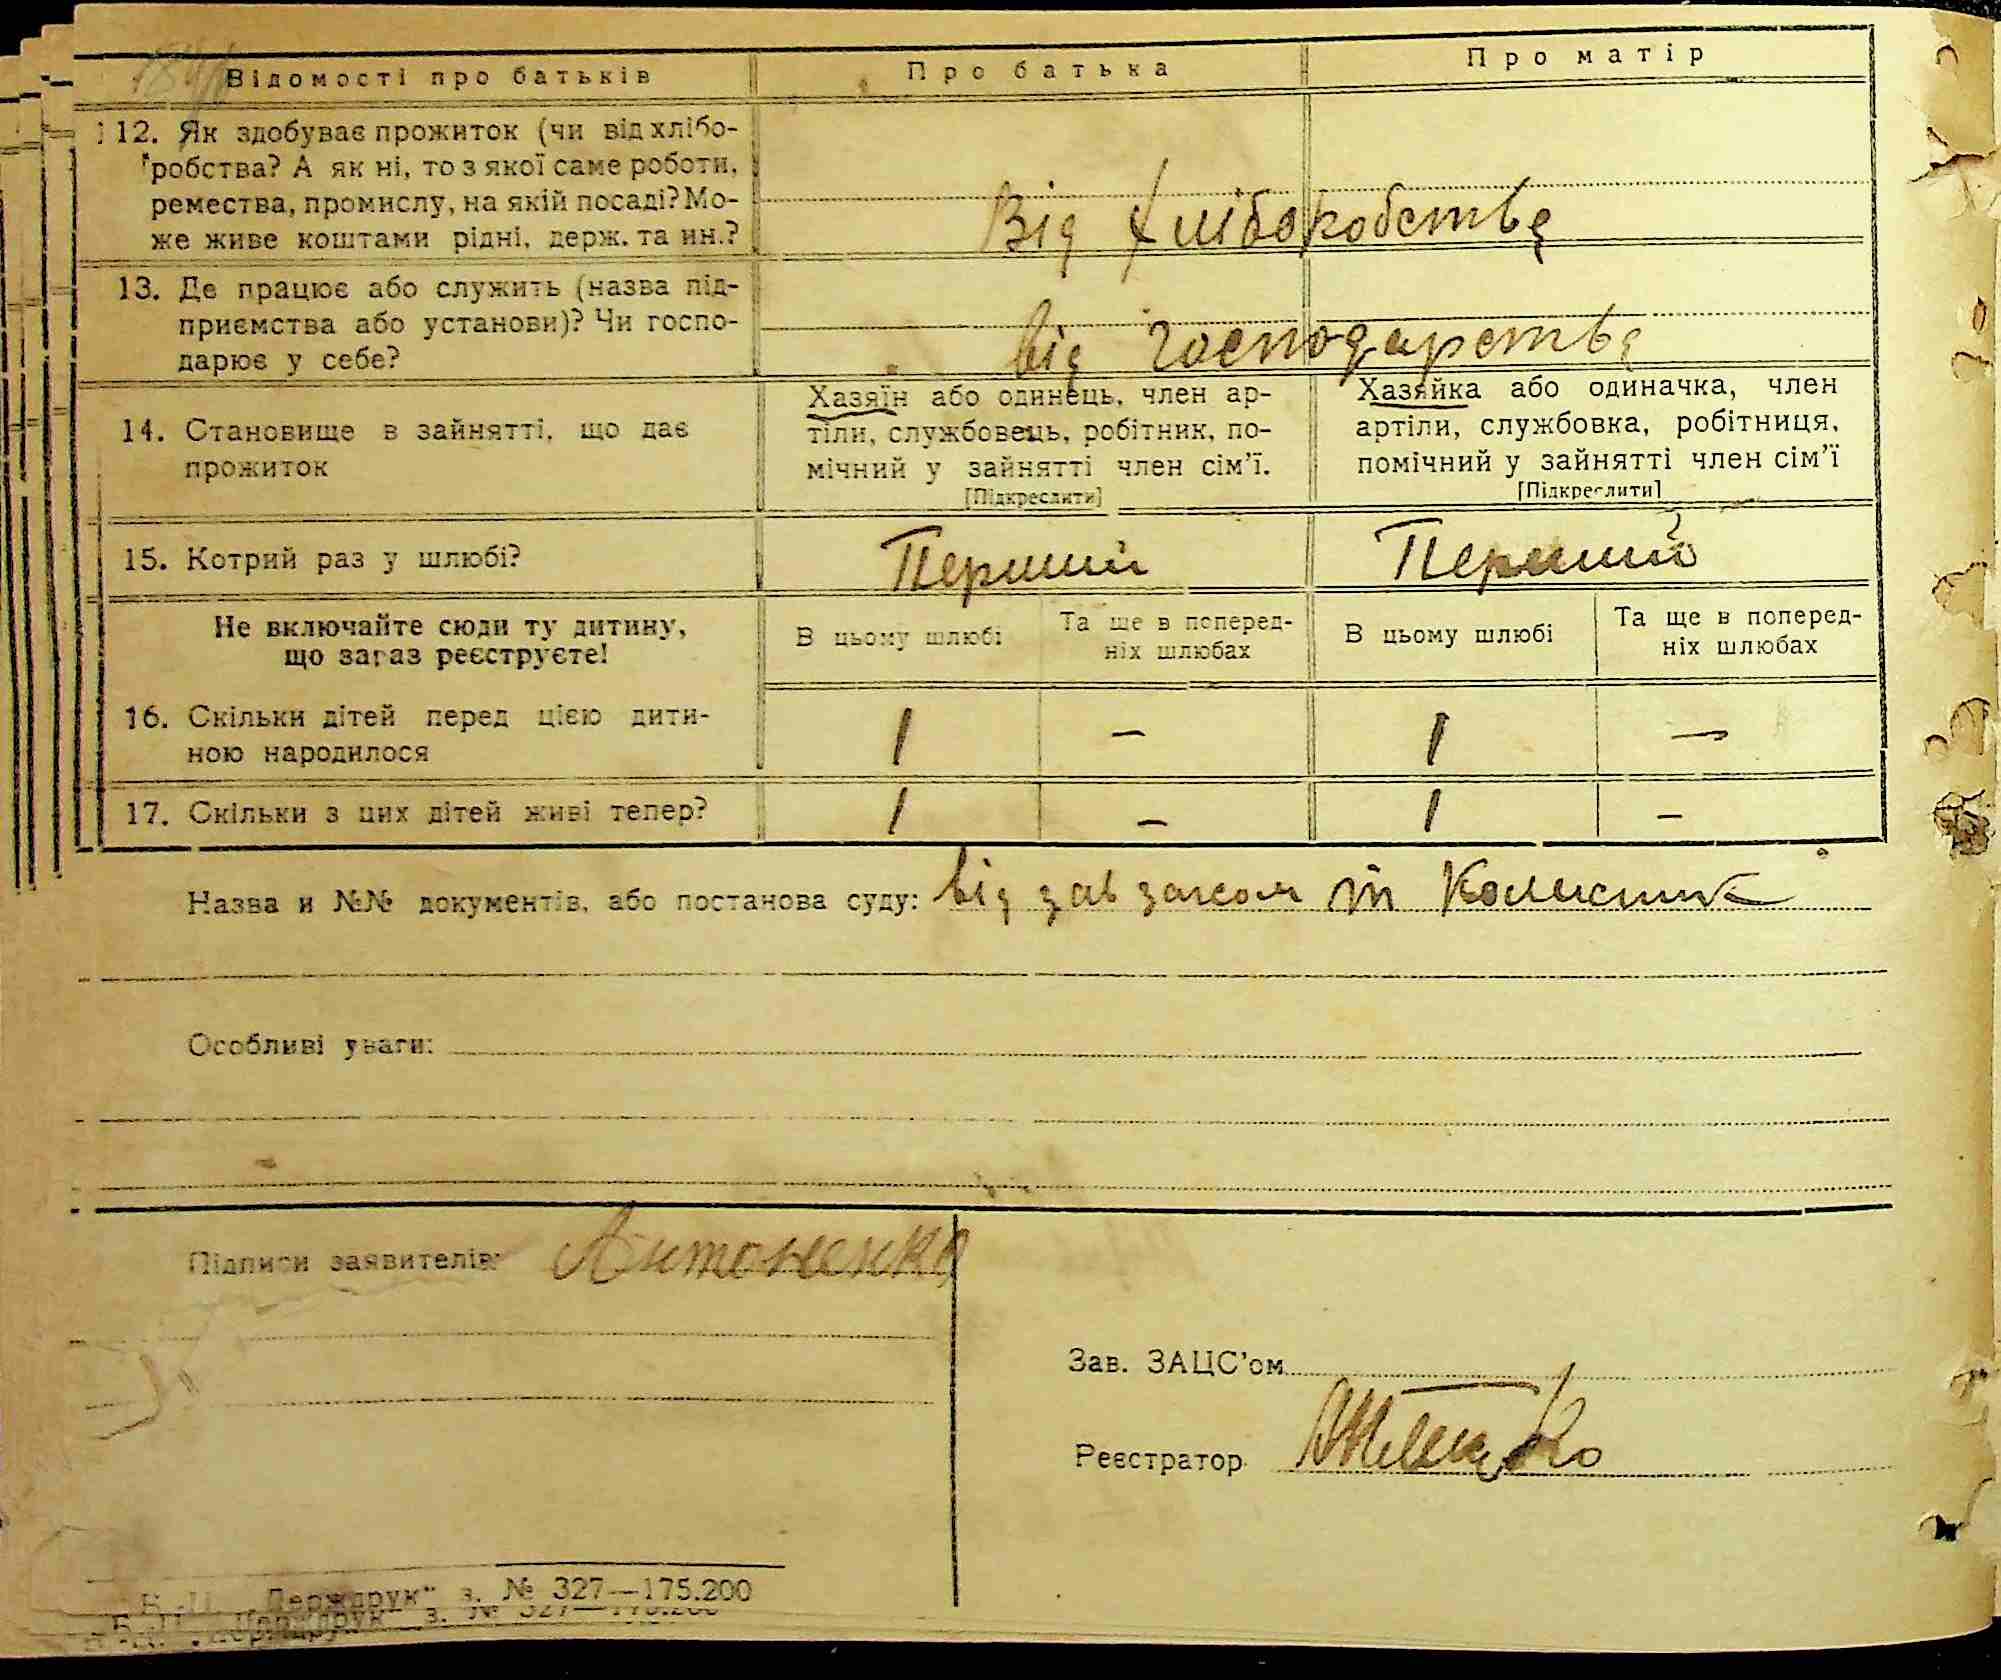 Відомості про батьків
Про батька
Про матір
12. Як здобуває прожиток (чи від хлібо-
робства? А як ні, то з якої саме роботи,
ремества, промислу, на якій посаді? Мо-
же живе коштами рідні, держ. та ин.?
Від хліборобства
13. Де працює або служить (назва під-
приємства або установи)? Чи госпо-
дарює у себе?
від господарства
14. Становище в зайнятті, що дає
прожиток
Хазяїн або одинець, член ар-
тіли, службовець, робітник, по-
мічний у зайнятті член сім’ї.
[Підкреслити]
Хазяйка або одиначка, член
артіли, службовка, робітниця,
помічний у зайнятті член сім’ї
[Підкреслити]
15. Котрий раз у шлюбі?
Перший
Перший
Не включайте сюди ту дитину,
що зараз реєструєте!
В цьому шлюбі
Та ще в поперед-
ніх шлюбах
В цьому шлюбі
Та ще в поперед-
ніх шлюбах
16. Скільки дітей перед цією дити-
ною народилося
1 – 1 –
17. Скільки з цих дітей живі тепер?
1 – 1 –
Назва и №№ документів, або постанова суду: від зав загсом
Особливі уваги:
Підписи заявителів: Антоненко
Зав. ЗАЦС’ом
Реєстратор
"Держдрук" з. № 327—175.200
"Держдрук" з. № 327—175.200